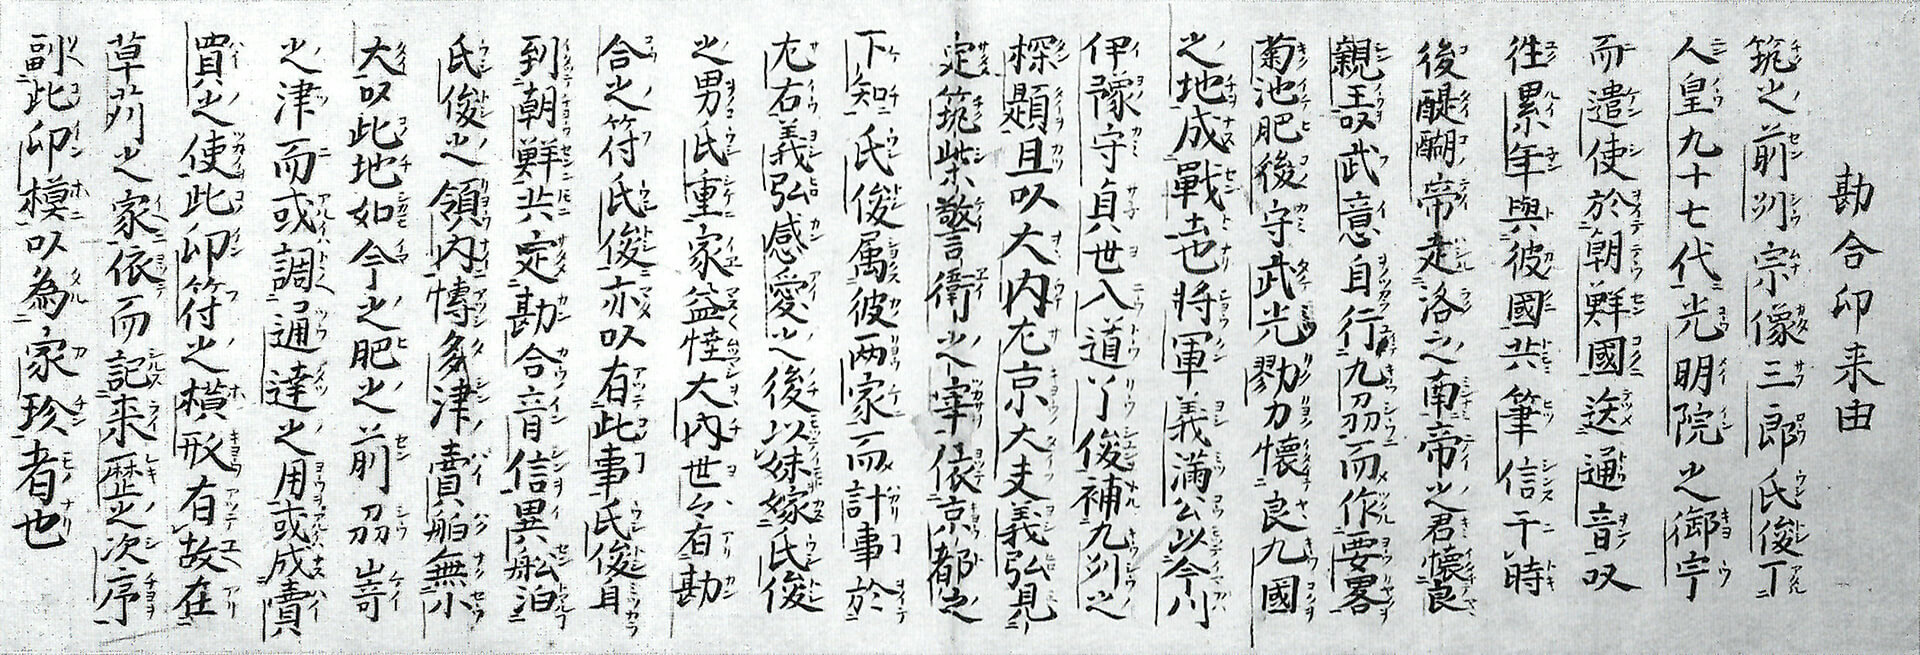 勘合印来由
筑之前刕宗像三郎氏俊丁
人皇九十七代光明院之御宇
而遣使於朝鮮國送通音以
徃累年與彼國共筆信于時
後醍醐帝走洛之南帝之君懐良
親王以武意自行九刕而作要畧
菊池肥後守武光勠力懐良九國
之地成戰土也將軍義満公以今川
伊豫守貞世入道了俊補九刕之
探題且以大内左京大夫義弘見
定筑紫警衛之宰依京都之
下知氏俊属彼两家而計事於
左右義弘感愛之後以妹嫁氏俊
之男氏重家益惶大内世々有勘
合之符氏俊亦以有此事氏俊自
到朝鮮共定勘合音信異舩泊
氏俊之領内慱多津賣舶無小
大以此地如今之肥之前刕嵜
之津而或調通達之用或成賣
買之使此印符之模形有故在
草苅之家依而記来歴之次序
副此印模以為家珍者也